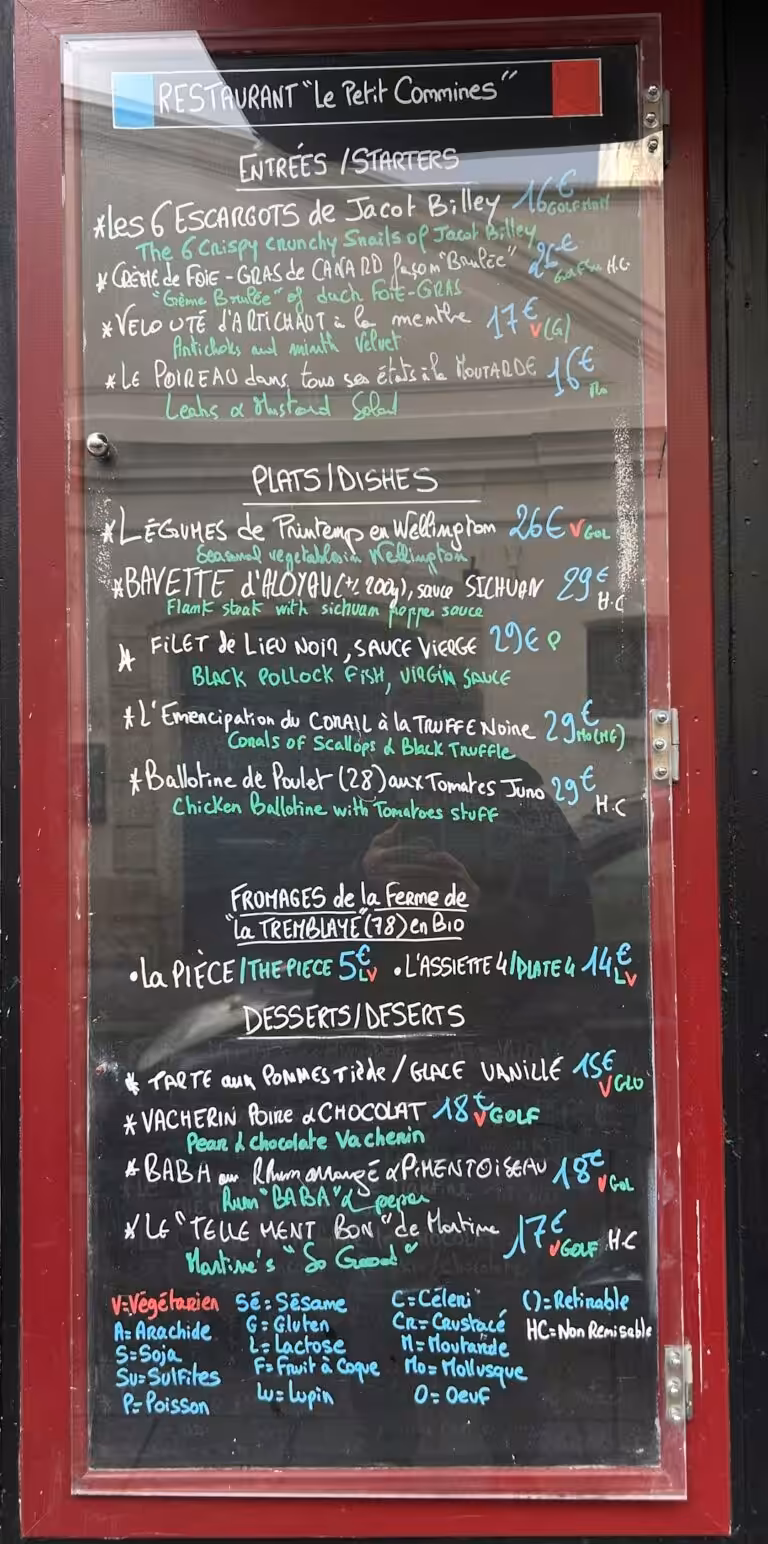 RESTAURANT "Le Petit Commines"
ENTRÉES / STARTERS
*Les 6 ESCARGOTS de Jacot Billey 16€
The 6 Crispy Crunchy Snails of Jacot Billey
* CRÈME de FOIE-GRAS de CANARD façon "Brulée" 25€ H.C
"Crème Brulée" of duch FOIE-GRAS
*VELOUTÉ d'ARTICHAUT à la menthe 17€ V(G)
Antichoks and minth Velvet
*LE POIREAU dans tous ses états à la MOUTARDE 16€
Leahs & Mustard Salad
PLATS/DISHES
*LÉGUMES de Printemp en Wellington 26€ V GOL
Seasonal vegetables in Wellington
*BAVETTE d'ALOYAU (+/- 200g), sauce SICHUAN 29€ H.C
Flank steak with sichuan pepper sauce
* FILET de LIEU NOIR, SAUCE VIERGE 29€ P
BLACK POLLOCK FISH, VIRGIN SAUCE
*L'Emencipation du CORAIL à la TRUFFE NOIRE 29€
Corals of Scallops & Black Truffle
*Ballotine de Poulet (28) aux Tomates Juno 29€ H.C
Chicken Ballotine with Tomatoes stuff
FROMAGES de la Ferme de
"la TREMBLAYE" (78) en BIO
•La PIÈCE/THE PIECE 5€ LV •L'ASSIETTE 4/PLATE 4 14€ LV
DESSERTS/DESERTS
* TARTE aux POMMES TIÈDE / GLACE VANILLE 15€ V GLO
*VACHERIN POIRE & CHOCOLAT 18€ V GOLF
Pear & chocolate Vacherin
*BABA au Rhum arrangé & PIMENT OISEAU 18€ V GOL
Rum "BABA" & peper
*LE "TELLE MENT BON" de Martine 17€ V GOLF H.C
Martine's "So Good"
V=Végétarien Sé=Sésame C=Céleri ()=Retirable
A=Arachide G=Gluten Cr=Crustacé HC=Non Remisable
S=Soja L=Lactose M=Moutarde
Su=Sulfites F=Fruit à Coque Mo=Mollusque
P=Poisson Lu=Lupin O=Oeuf